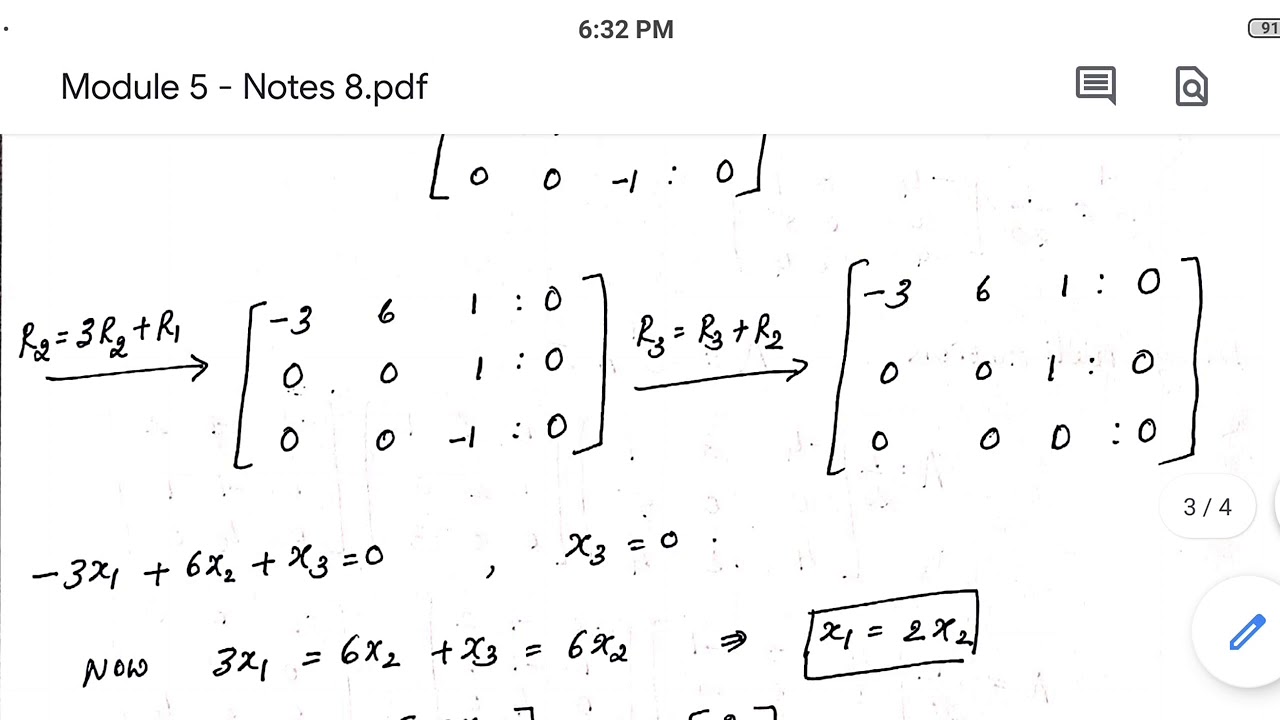 6:32 PM
91
Module 5 - Notes 8.pdf
0 0 -1 : 0
R₂ = 3R₂ + R₁
-3 6 1 : 0
0 0 1 : 0
0 0 -1 : 0
R₃ = R₃ + R₂
-3 6 1 : 0
0 0 1 : 0
0 0 0 : 0
3 / 4
-3x₁ + 6x₂ + x₃ = 0 , x₃ = 0
Now 3x₁ = 6x₂ + x₃ = 6x₂ ⇒ x₁ = 2x₂